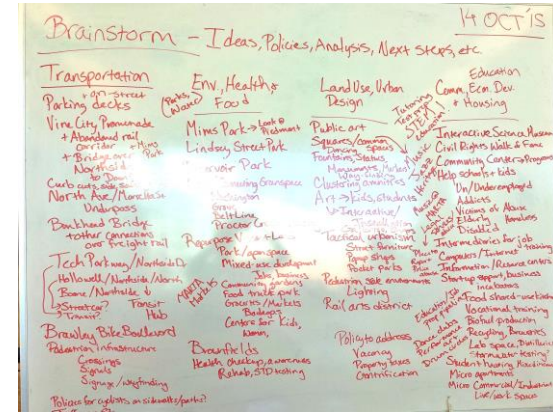 14 OCT '15
Brainstorm – Ideas, Policies, Analysis, Next Steps, etc.
Transportation
+ on-street
Parking decks
Vine City Promenade
+ Abandoned rail
corridor + Mims
+ Bridge over Park
Northside
to Dome
Curb cuts, side
North Ave/Marietta St
Underpass
Bankhead Bridge
+ other connections
over freight rail
Tech Parkway/Northside Dr
Hollowell/Northside/North
Boone/Northside
Streetcar? Transit
Hub
Brawley Bike Boulevard
Pedestrian infrastructure
Crossings
Signals
Signage/wayfinding
Policies for cyclists on sidewalks/paths?
Env., Health, &
Food
(Parks, Water)
Mims Park → Look @
Piedmont
Lindsay Street Park
Reservoir Park
Connecting Greenspace
Washington
BeltLine
Proctor Cr.
Repurpose Vacant
Park/openspace
Mixed use development
Jobs, business
Community gardens
Food truck park
Groceries/Markets
Bodegas
Centers for Kids,
Women,
MARTA
Markets
Brownfields
Health checkups, awareness
Rehab, STD testing
Land Use, Urban
Design
Public art
Squares/common
Dancing, spaces
Fountains, Statues,
Monuments, Markers
Way finding
Clustering amenities
Art → kids, students
Interactive/
Installation
Tactical urbanism
Street furniture
Popup shops
Pocket parks
Pedestrian safe environments
Lighting
Rail arts district
Policy to address
Vacancy
Property taxes
Gentrification
Education
Comm., Econ. Dev.
+ Housing
Tutoring
STEM!
education
Music
Jazz
Heritage
Music @
MARTA
Interactive Science Museum
Civil Rights Walk of Fame
Community Center → Programs
Help schools + kids
Un/Underemployed
Addicts
Victims of Abuse
Elderly Homeless
Disabled
Intermediaries for job
Computers/Internet Training
Information/Resource Centers
Startup support, business
incubators
Food shared-use kitchen
Vocational training
Biofuel production
Recycling, Breweries
Lab space, Distilleries
"stormwater testing"
Student housing
Micro apartments
Micro Commercial/Industrial
Live/work spaces
Dance classes
Performance